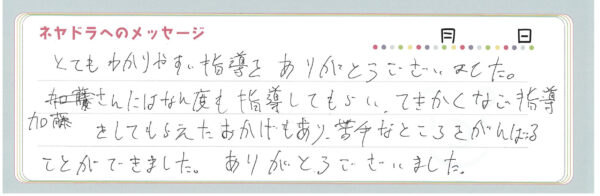 ネヤドラへのメッセージ
月 日
とてもわかりやすい指導をありがとうございました。
加藤さんにはなん度も指導してもらい、てきかくなご指導
加藤 をしてもらえたおかげもあり、苦手なところをがんばる
ことができました。ありがとうございました。